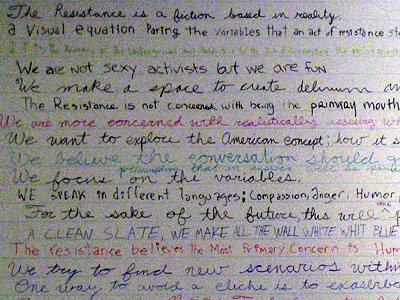 The Resistance is a fiction based in reality.
a Visual equation Paring the variables that an act of resistance
We are not sexy activists but we are fun
We make a space to create delirium an
The Resistance is not concerned with being the primary mouth
We are more concerned with realistically assessing wh
We want to explore the American concept; how it s
We believe the conversation should g
We focus on the variables.
WE SPEAK in different languages; Compassion, anger, Humor,
For the sake of the future, this will
A CLEAN SLATE, WE MAKE ALL THE WALL WHITE WHIT BLUE
The resistance believes The Most Primary Concern is Hum
We try to find new scenarios within
One way to avoid a cliche is to exaserba